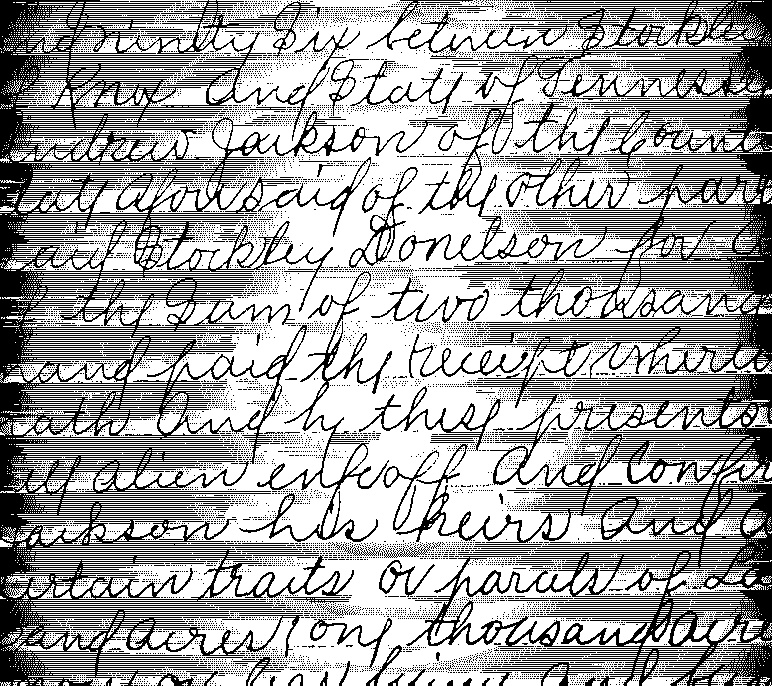 and ninetty Six between Stockle
f Knox And State of Tennesse
andrew Jackson of the Count
tate aforesaid of the other part
said Stockley Donelson for
f the Sum of two thousand
hand paid the receipt where
hath And by these presents
ell alien enfeoff And Confir
Jackson his heirs And a
ertain tracts or parcels of La
sand acres one thousand acre
more or less being and